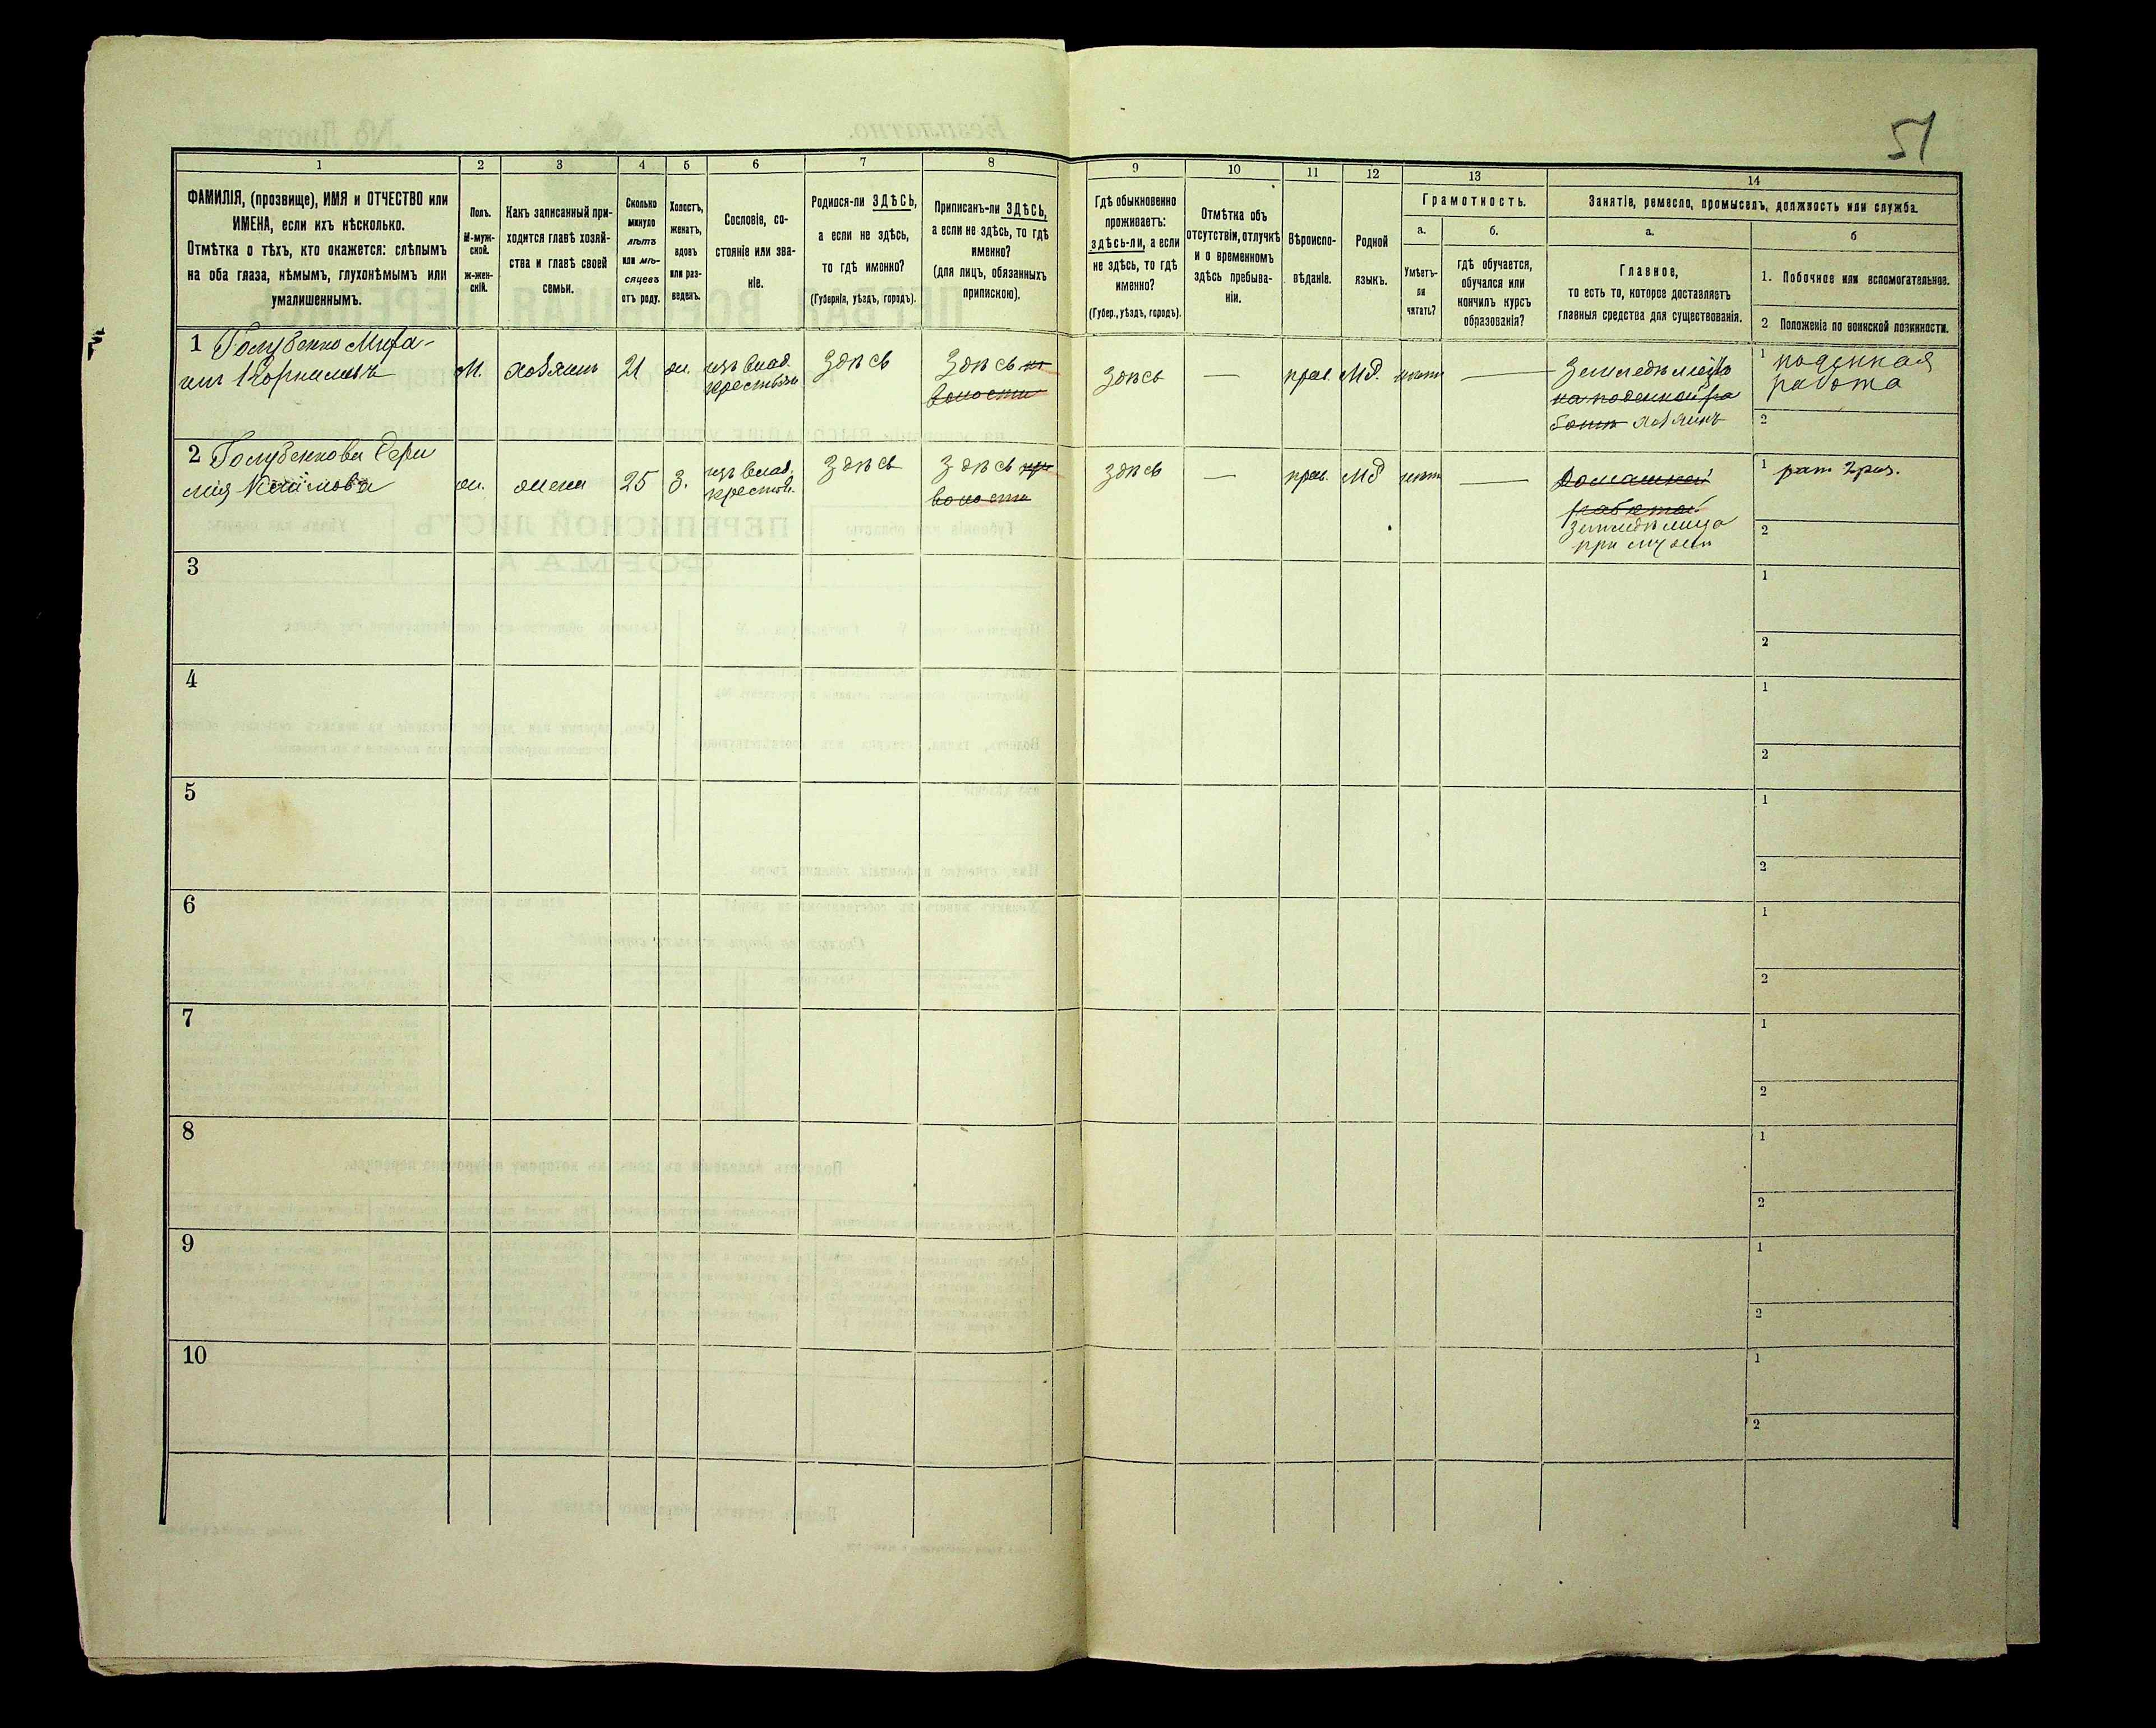 51
1
2
3
4
5
6
7
8
9
10
11
12
13
14
ФАМИЛІЯ, (прозвище), ИМЯ и ОТЧЕСТВО или
ИМЕНА, если ихъ нѣсколько.
Отмѣтка о тѣхъ, кто окажется: слѣпымъ
на оба глаза, нѣмымъ, глухонѣмымъ или
умалишеннымъ.
Полъ.
М-муж-
ской.
ж-жен-
скій.
Какъ записанный при-
ходится главѣ хозяй-
ства и главѣ своей
семьи.
Сколько
минуло
лѣтъ
или мѣ-
сяцевъ
отъ роду.
Холостъ,
женатъ,
вдовъ
или раз-
веденъ.
Сословіе, со-
стояніе или зва-
ніе.
Родился-ли ЗДѢСЬ,
а если не здѣсь,
то гдѣ именно?
(Губернія, уѣздъ, городъ).
Приписанъ-ли ЗДѢСЬ,
а если не здѣсь, то гдѣ
именно?
(для лицъ, обязанныхъ
припискою).
Гдѣ обыкновенно
проживаетъ:
здѣсь-ли, а если
не здѣсь, то гдѣ
именно?
(Губер., уѣздъ, городъ).
Отмѣтка объ
отсутствіи, отлучкѣ
и о временномъ
здѣсь пребыва-
ніи.
Вѣроиспо-
вѣданіе.
Родной
языкъ.
Грамотность.
а.
Умѣетъ-
ли
читать?
б.
гдѣ обучается,
обучался или
кончилъ курсъ
образованія?
Занятіе, ремесло, промыселъ, должность или служба.
а.
Главное,
то есть то, которое доставляетъ
главныя средства для существованія.
б
1. Побочное или вспомогательное.
2 Положеніе по воинской повинности.
1 Голубенко
М.
хозяинъ
21
ж.
изъ влад.
крестьян
здѣсь
здѣсь
волости
здѣсь
—
прав.
Мд.
нѣтъ
—
на поденной ра
ботѣ хозяинъ
1 поденная
работа
2
2 Голубенкова
ж.
жена
25
З.
изъ влад.
крестьян.
здѣсь
здѣсь при
волости
здѣсь
—
прав.
Мд
нѣтъ
—
домашней
работой
при мужѣ
1
2
3
1
2
4
1
2
5
1
2
6
1
2
7
1
2
8
1
2
9
1
2
10
1
2